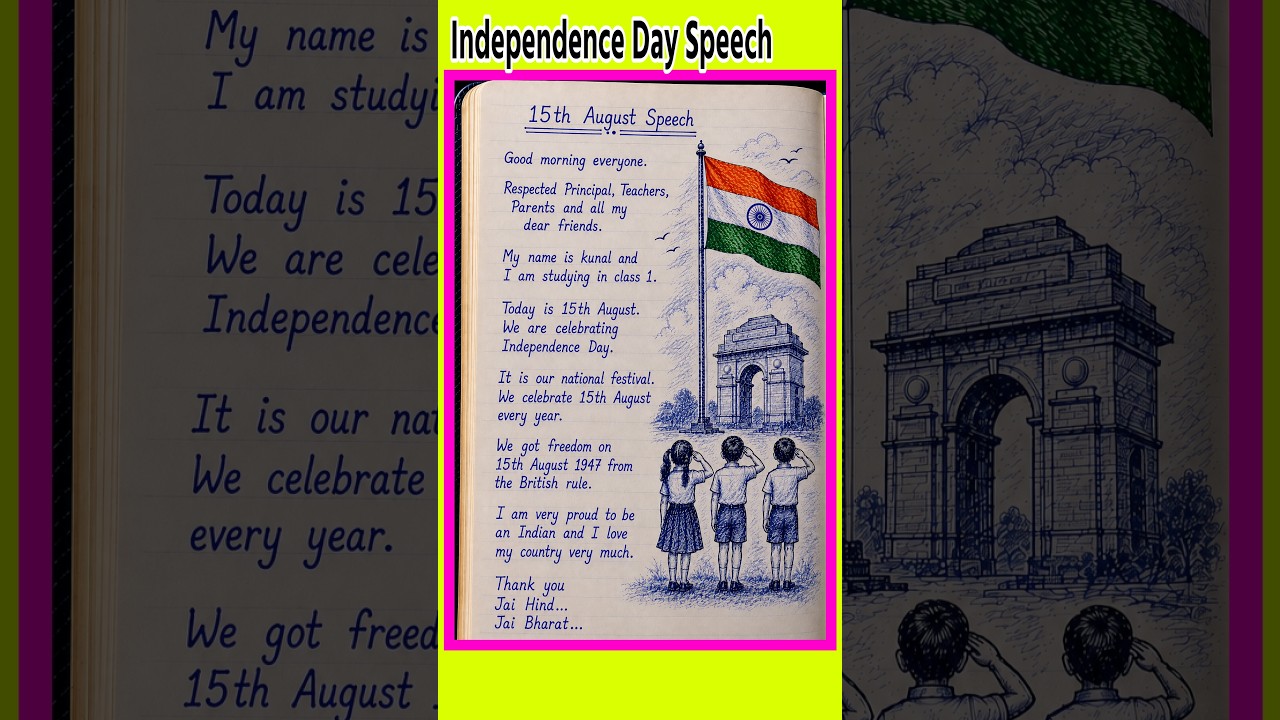 Independence Day Speech
15th August Speech
Good morning everyone.
Respected Principal, Teachers,
Parents and all my
dear friends.
My name is kunal and
I am studying in class 1.
Today is 15th August.
We are celebrating
Independence Day.
It is our national festival.
We celebrate 15th August
every year.
We got freedom on
15th August 1947 from
the British rule.
I am very proud to be
an Indian and I love
my country very much.
Thank you
Jai Hind...
Jai Bharat...
My name is
I am studyi
Today is 15
We are cele
Independence
It is our nat
We celebrate
every year.
We got freed
15th August